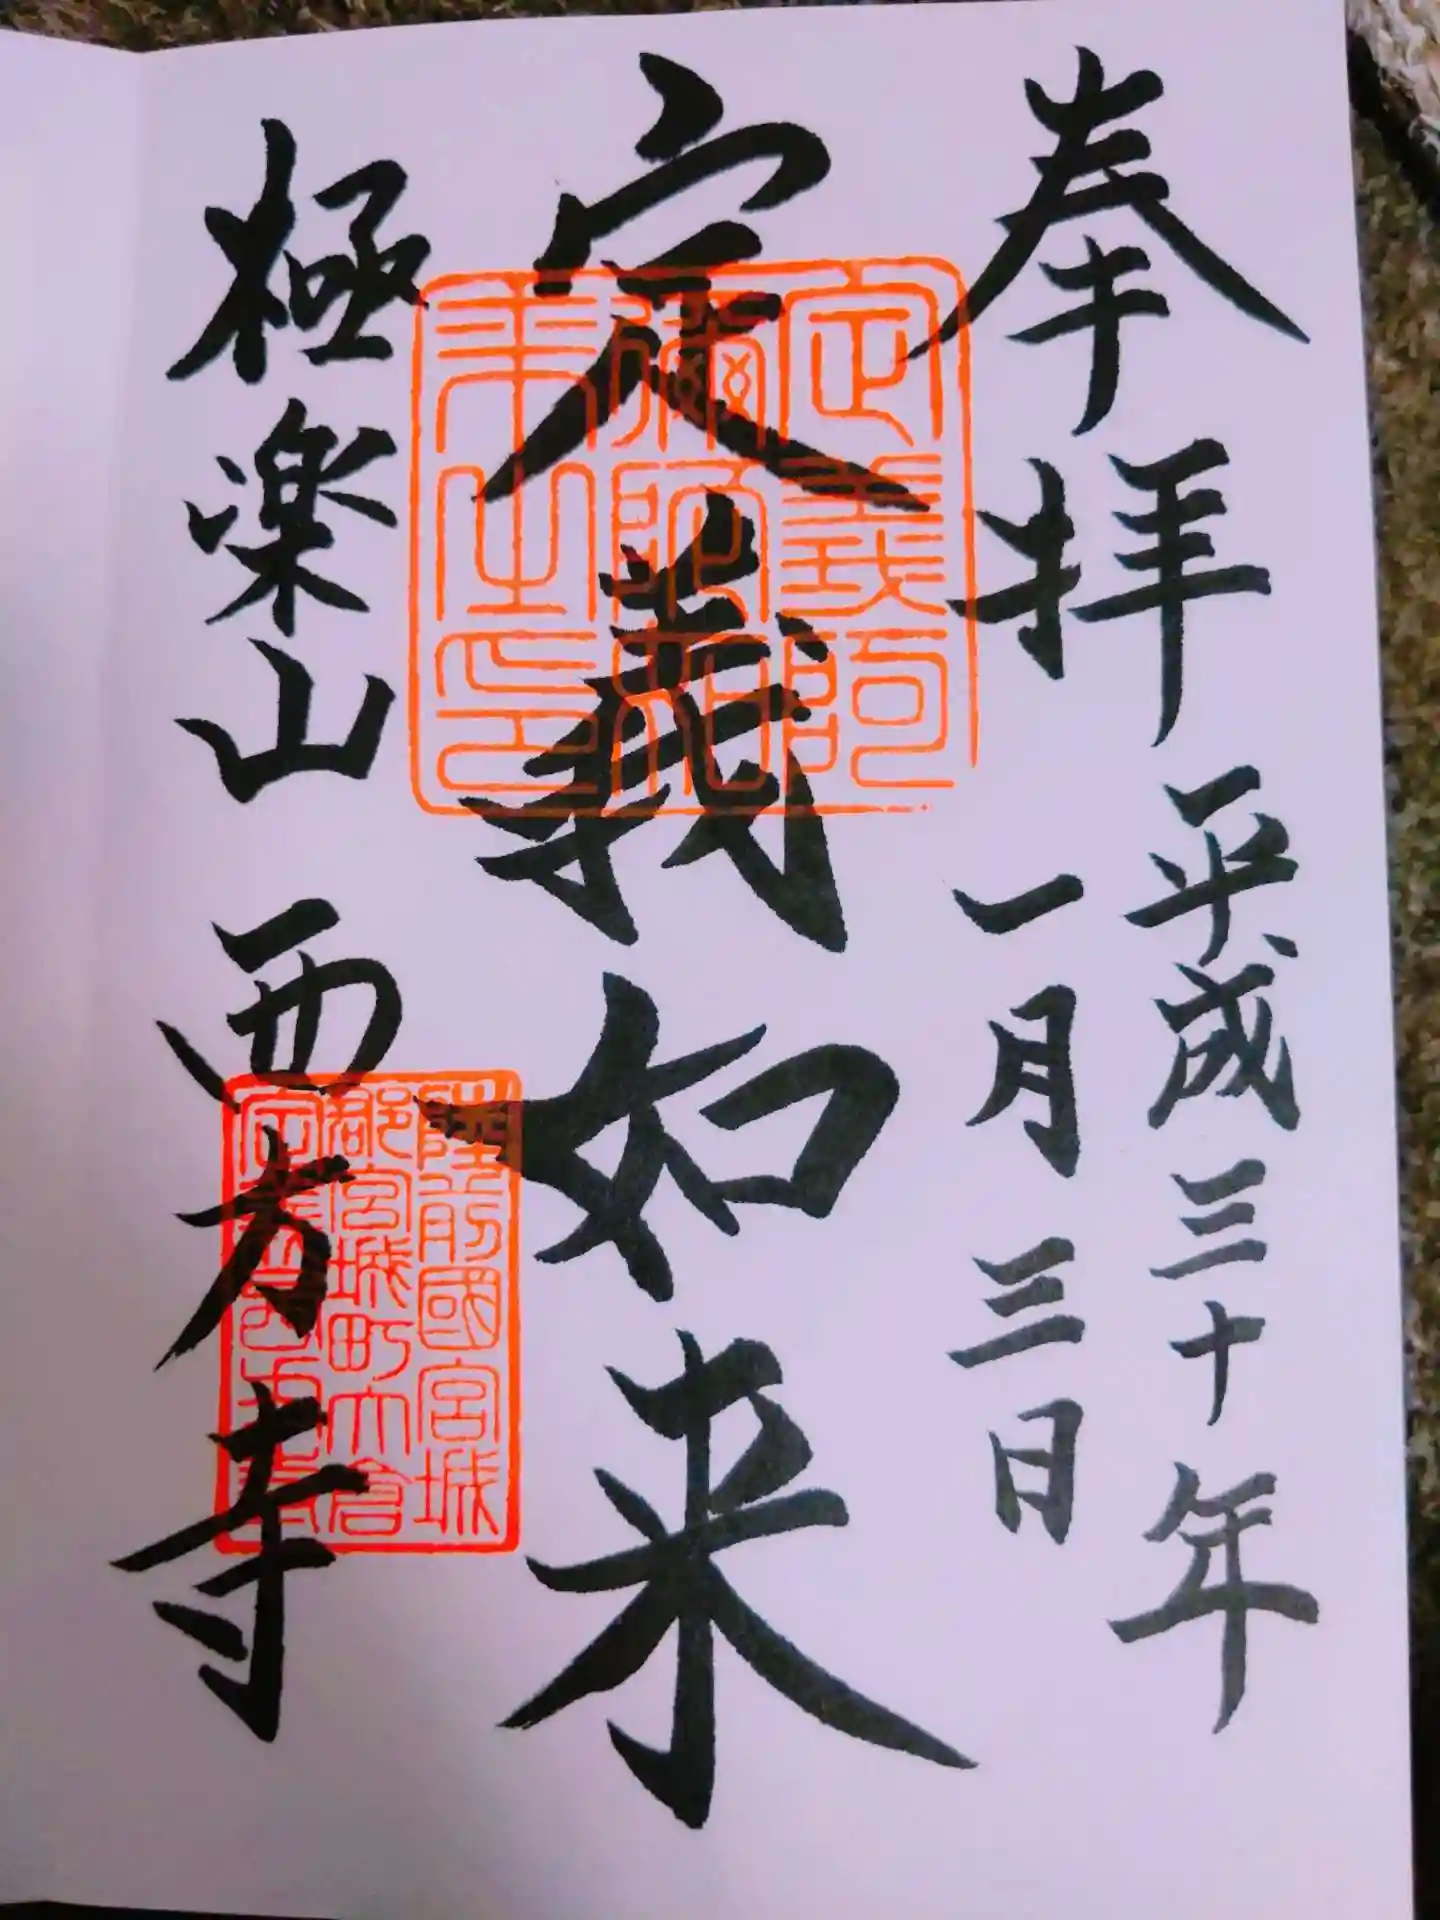 奉拝
平成三十年
一月三日
定義如来
定義阿
彌陀如
来之印
極楽山 西方寺
陸前國宮城
郡宮城町大倉
定義山西方寺